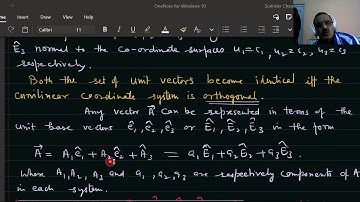 OneNote for Windows 10
Ê₃ normal to the co-ordinate surfaces u₁=c₁, u₂=c₂, u₃=c₃
respectively.
Both the set of unit vectors become identical iff the
curvilinear coordinate system is orthogonal.
Any vector A⃗ can be represented in terms of the
unit base vectors ê₁, ê₂, ê₃ or Ê₁, Ê₂, Ê₃ in the form
A⃗ = A₁ê₁ + A₂ê₂ + A₃ = a₁Ê₁ + a₂Ê₂ + a₃Ê₃.
Where A₁, A₂, A₃ and a₁, a₂, a₃ are respectively components of A⃗
in each system.